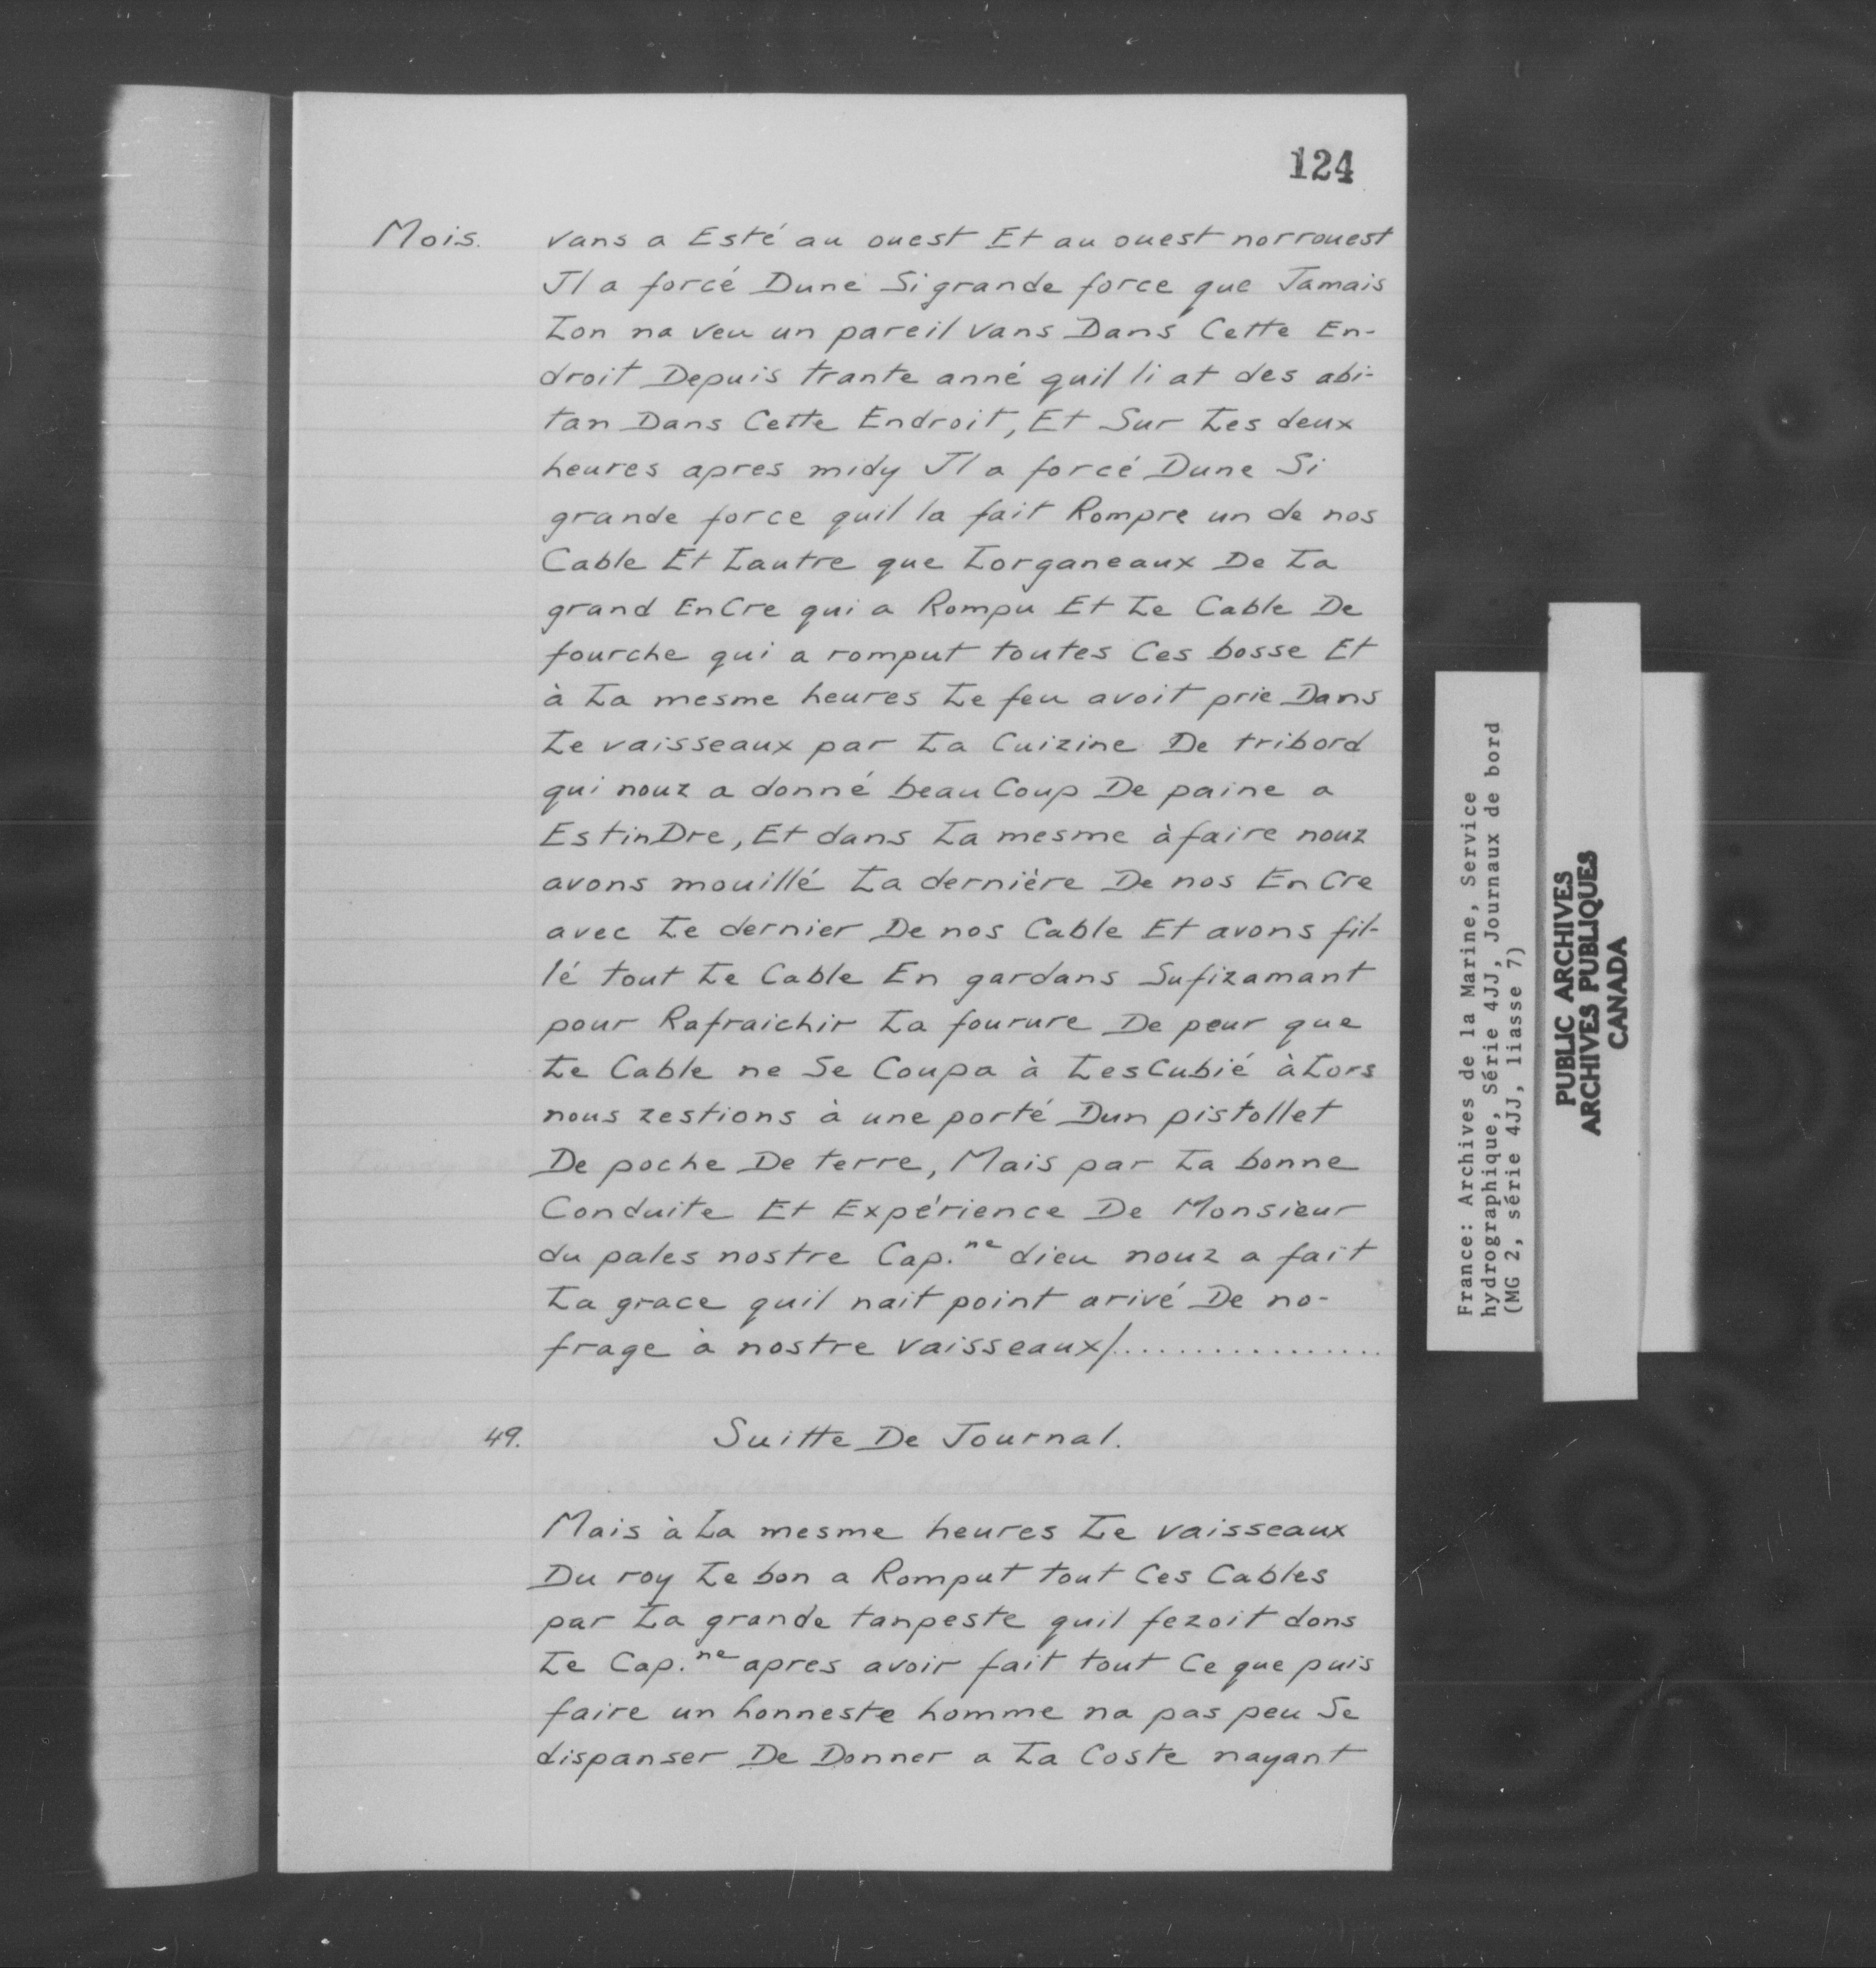 124
Mois. vans a Esté au ouest Et au ouest norrouest
Jl a forcé Dune Si grande force que Jamais
Lon na veu un pareil vans Dans Cette En-
droit Depuis trante anné quil li at des abi-
tan Dans Cette Endroit, Et Sur Les deux
heures apres midy Jl a forcé Dune Si
grande force quil la fait Rompre un de nos
Cable Et Lautre que Lorganeaux De La
grand EnCre qui a Rompu Et Le Cable De
fourche qui a romput toutes Ces bosse Et
à La mesme heures Le feu avoit prie Dans
Le vaisseaux par La Cuizine De tribord
qui nouz a donné beau Coup De paine a
EstinDre, Et dans La mesme àfaire nouz
avons mouillé La dernière De nos EnCre
avec Le dernier De nos Cable Et avons fil-
lé tout Le Cable En gardans Sufizamant
pour Rafraichir La fourure De peur que
Le Cable ne Se Coupa à LesCubié àLors
nous zestions à une porté Dun pistollet
De poche De terre, Mais par La bonne
Conduite Et Expérience De Monsieur
du pales nostre Cap.ne dieu nouz a fait
La grace quil nait point arivé De no-
frage à nostre vaisseaux/................
49. Suitte De Journal.
Mais à La mesme heures Le vaisseaux
Du roy Le bon a Romput tout Ces Cables
par La grande tanpeste quil fezoit dons
Le Cap.ne apres avoir fait tout Ce que puis
faire un honneste homme na pas peu Se
dispanser De Donner a La Coste nayant
France: Archives de la Marine, Service
hydrographique, Série 4JJ, Journaux de bord
(MG 2, série 4JJ, liasse 7)
PUBLIC ARCHIVES
ARCHIVES PUBLIQUES
CANADA